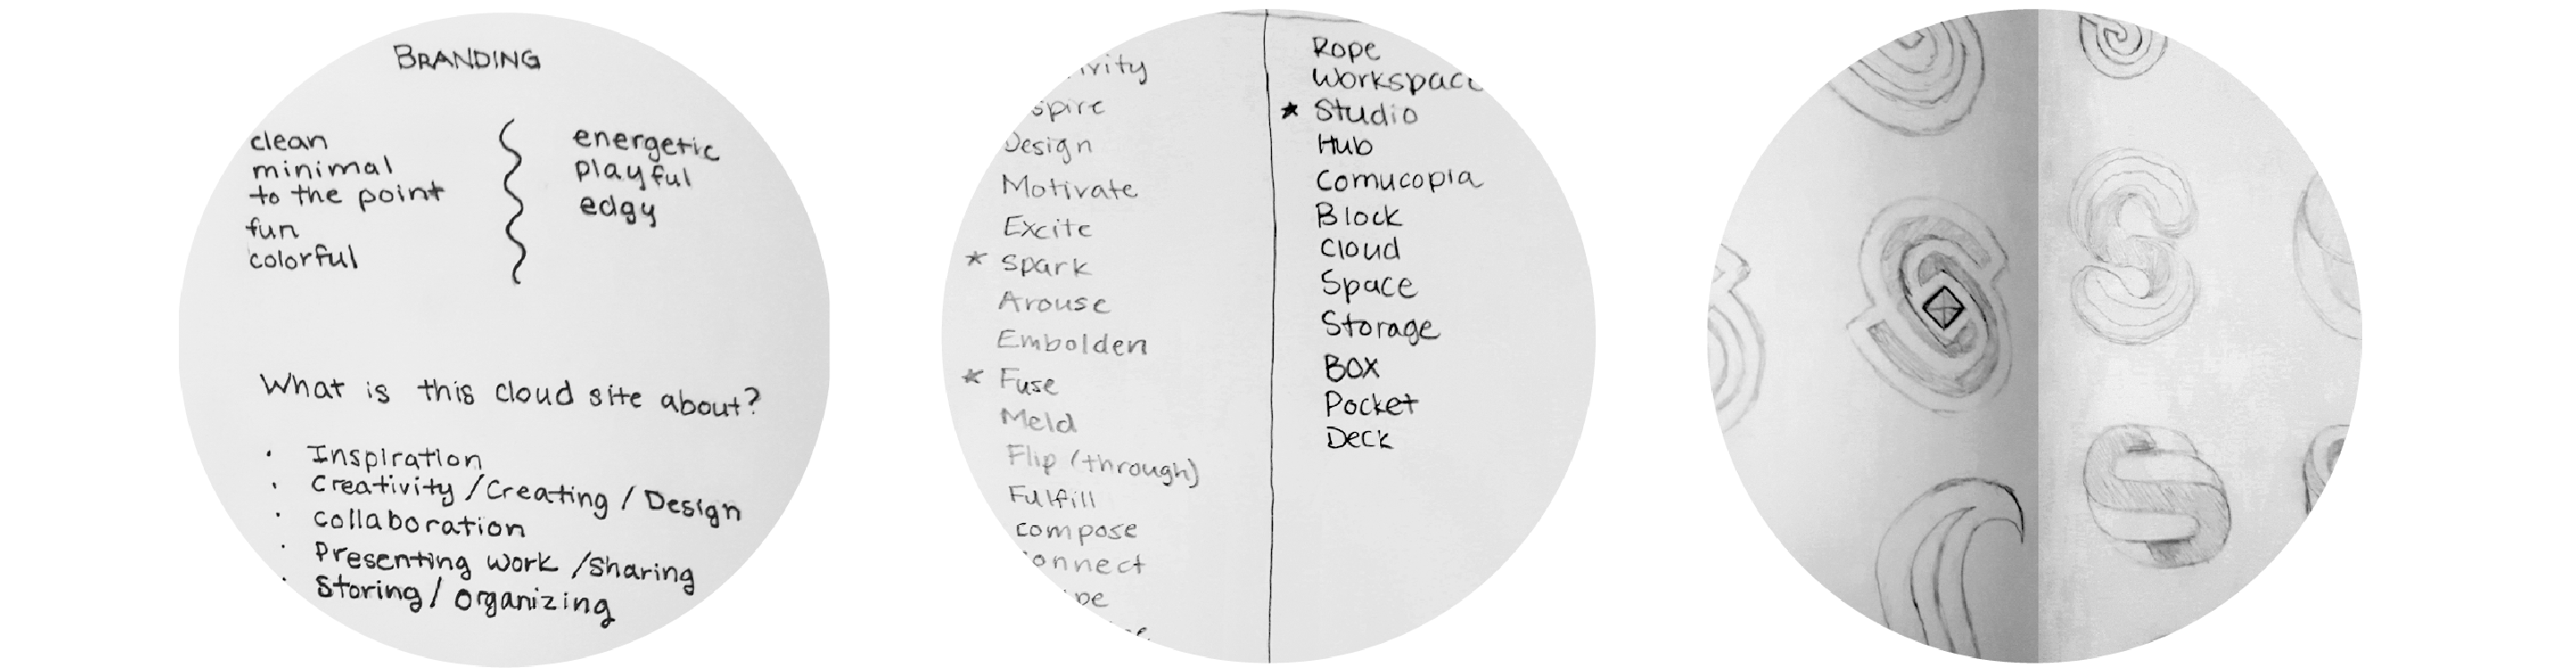 BRANDING
clean
minimal
to the point
fun
colorful
energetic
playful
edgy
What is this cloud site about?
· Inspiration
· Creativity / Creating / Design
· collaboration
· Presenting work / Sharing
· Storing / organizing
ivity
spire
Design
Motivate
Excite
* Spark
Arouse
Embolden
* Fuse
Meld
Flip (through)
Fulfill
compose
onnect
pe
Rope
Workspace
★ Studio
Hub
Cornucopia
Block
Cloud
Space
Storage
Box
Pocket
Deck